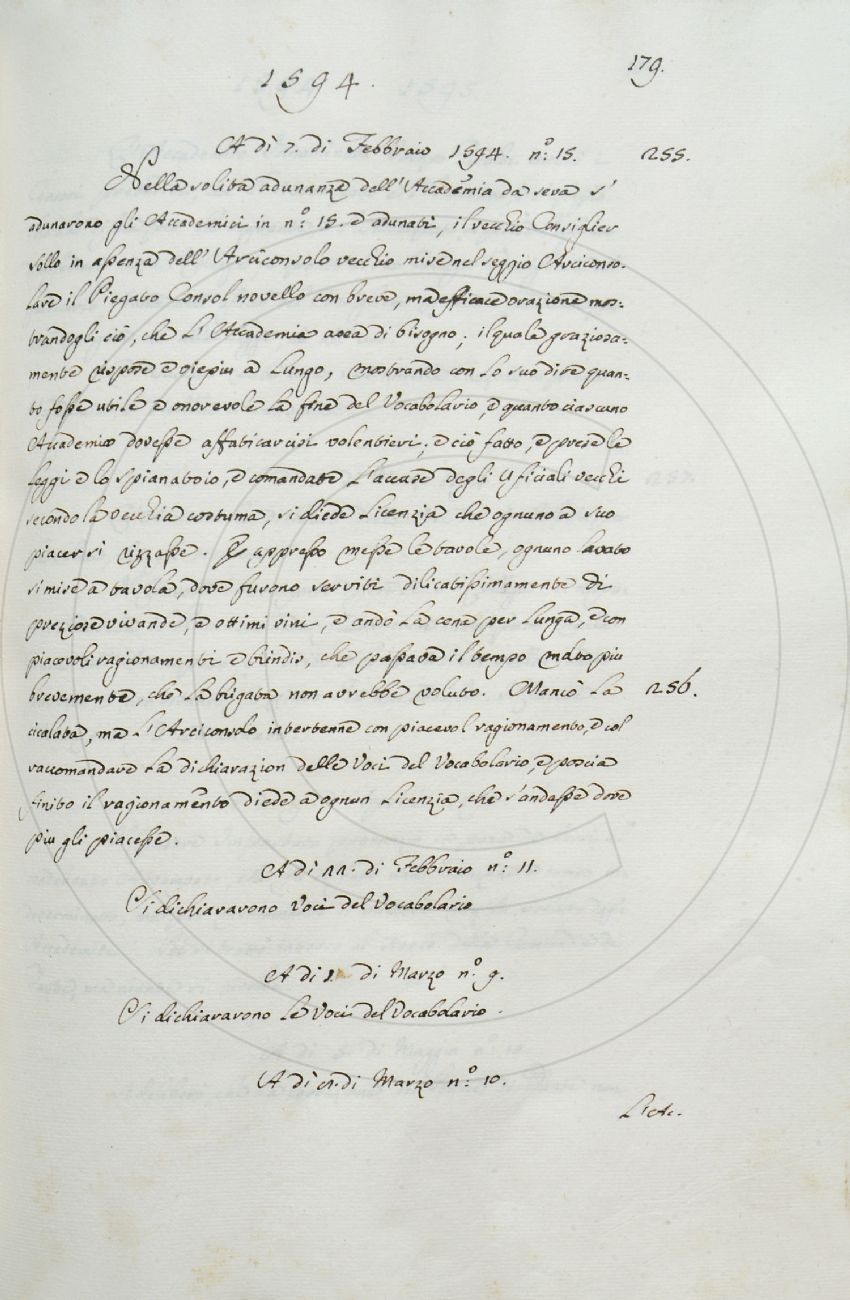 1594.
179.
A dì 7. di Febbraio 1594. n.° 15. 255.
Nella solita adunanza dell'Accademia da sera s'
adunarono gli Accademici in n.° 15. e adunati, il vecchio Consiglier
sollo in assenza dell'Arciconsolo vecchio mise nel seggio Arciconso-
lare il Piegato Consol novello con breve, ma efficace orazione mos-
trandogli ciò, che L'Accademia avea di bisogno; il quale graziosa-
mente rispose e viepiù a Lungo, mostrando con lo suo dire quan-
to fosse utile e onorevole la fine del Vocabolario, e quanto ciascuno
Accademico dovesse affaticarcisi volentieri; e ciò fatto, e prese le
leggi e lo spianatoio, e comandatte L'accuse degli Uficiali vecchi
secondo la vecchia costuma, si diede Licenzia che ognuno a suo
piacer si rizzasse. E appresso messe le tavole, ognuno lavato
si mise a tavola, dove furono serviti dilicatissimamente di
preziose vivande, e ottimi vini, e andò La cena per Lunga, e con
piacevoli ragionamenti e brindis, che passava il tempo molto più
brevemente, che La brigata non avrebbe voluto. Mancò La 256.
cicalata, ma L'Arciconsolo intertenne con piacevol ragionamento, e col
raccomandare La dichiarazion delle Voci del Vocabolario, e poscia
finito il ragionamento diede a ognun Licenzia, che s'andasse dove
più gli piacesse.
A dì 22. di Febbraio n.° 11.
Si dichiararono Voci del Vocabolario
A dì di Marzo n.° 9.
Si dichiararono Le Voci del Vocabolario.
A dì di Marzo n.° 10.